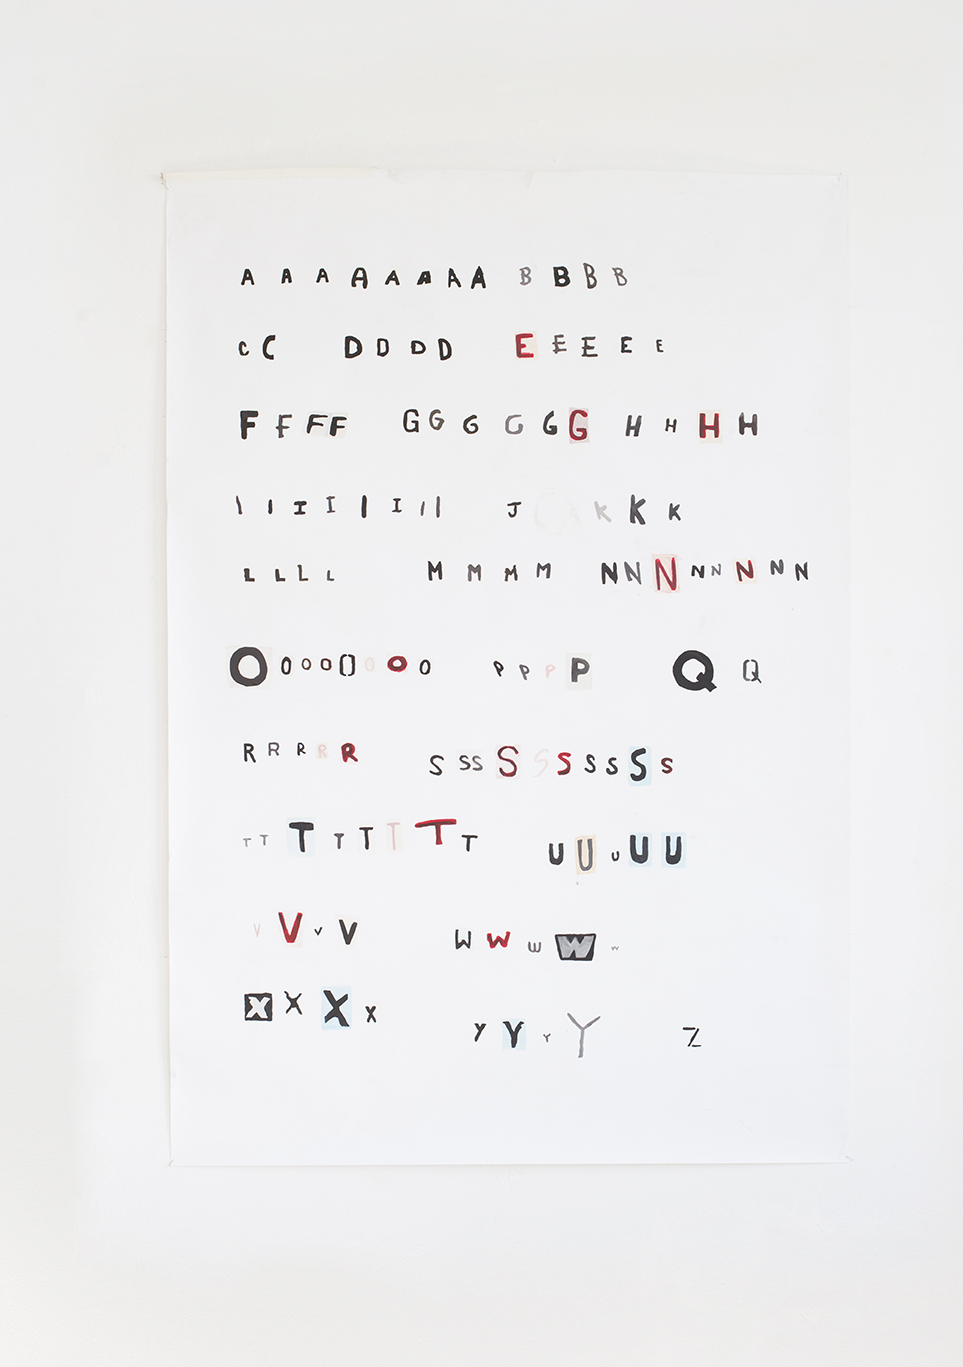 A A A A A A A A B B B B
C C D D D D E E E E E
F F F F G G G G G G H H H H
I I I I I I I I J K K K
L L L L M M M M N N N N N N N N N
O O O O O O O O P P P P Q Q
R R R R R S S S S S S S S S S
T T T T T T T T U U U U U
V V V V W W W W W
X X X X Y Y Y Y Z